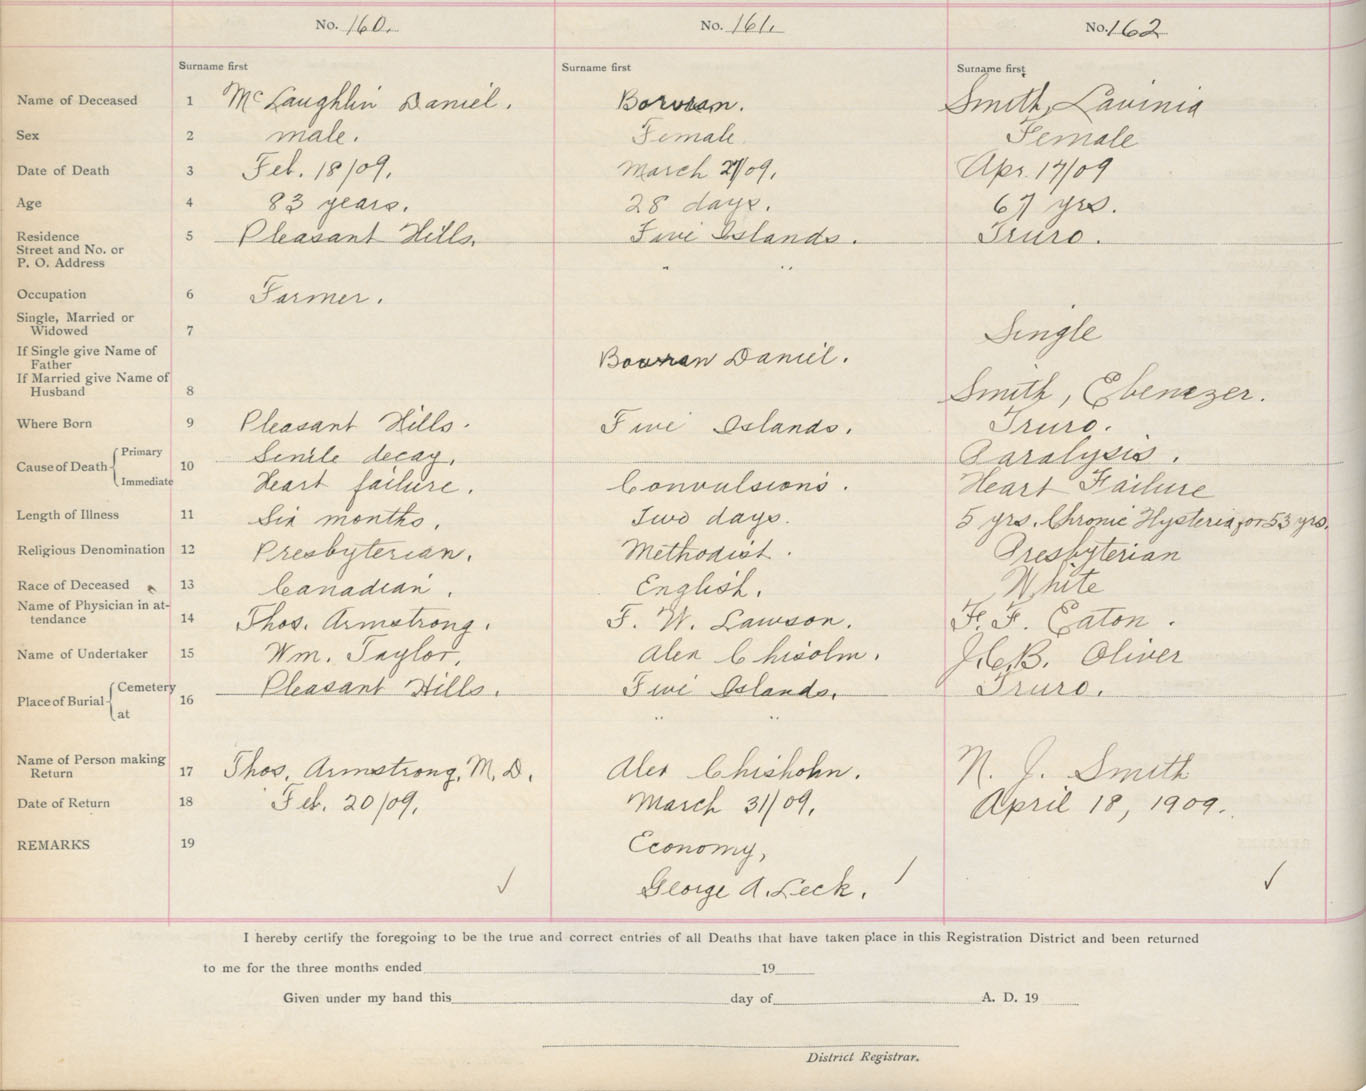 No. 160. No. 161. No. 162
Surname first Surname first Surname first
Name of Deceased 1 McLaughlin Daniel. Smith, Lavinia
Sex 2 male. Female. Female
Date of Death 3 Feb. 18/09. March 27/09. Apr. 17/09
Age 4 83 years. 28 days. 67 yrs.
Residence 5 Pleasant Hills. Five Islands. Truro.
Street and No. or
P. O. Address " "
Occupation 6 Farmer.
Single, Married or
Widowed 7 Single
If Single give Name of
Father Daniel.
If Married give Name of
Husband 8 Smith, Ebenezer.
Where Born 9 Pleasant Hills. Five Islands. Truro.
Primary Senile decay. Paralysis.
Cause of Death 10
Immediate Heart failure. Convulsions. Heart Failure
Length of Illness 11 Six months. Two days. 5 yrs. Chronic Hysteria for 53 yrs.
Religious Denomination 12 Presbyterian. Methodist. Presbyterian
Race of Deceased 13 Canadian. English. White
Name of Physician in at-
tendance 14 Thos. Armstrong. F. W. Lawson. F. F. Eaton.
Name of Undertaker 15 Wm. Taylor. Alex Chisolm. J.C.B. Oliver
Cemetery Pleasant Hills. Five Islands. Truro.
Place of Burial 16
at " "
Name of Person making
Return 17 Thos. Armstrong, M.D. Alex Chisholm. N. J. Smith
Date of Return 18 Feb. 20/09. March 31/09. April 18, 1909.
REMARKS 19 Economy,
George A. Leck.
I hereby certify the foregoing to be the true and correct entries of all Deaths that have taken place in this Registration District and been returned
to me for the three months ended 19
Given under my hand this day of A. D. 19
District Registrar.